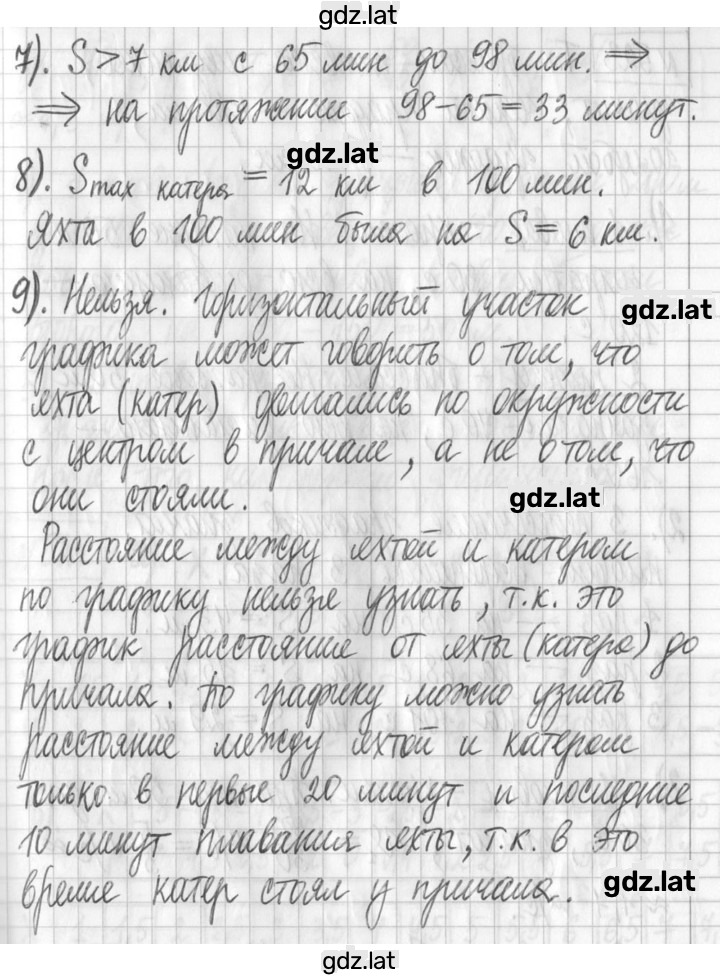 gdz.lat
7). S > 7 км с 65 мин до 98 мин. ⇒
⇒ на протяжении 98 - 65 = 33 минут.
gdz.lat
8). Smax катера = 12 км в 100 мин.
Яхта в 100 мин была на S = 6 км.
9). Нельзя. Горизонтальный участок
gdz.lat
графика может говорить о том, что
яхта (катер) двигались по окружности
с центром в причале, а не о том, что
они стояли.
gdz.lat
Расстояние между яхтой и катером
по графику нельзя узнать, т.к. это
график расстояние от яхты (катера) до
причала. По графику можно узнать
расстояние между яхтой и катером
только в первые 20 минут и последние
10 минут плавания яхты, т.к. в это
время катер стоял у причала.
gdz.lat
gdz.lat